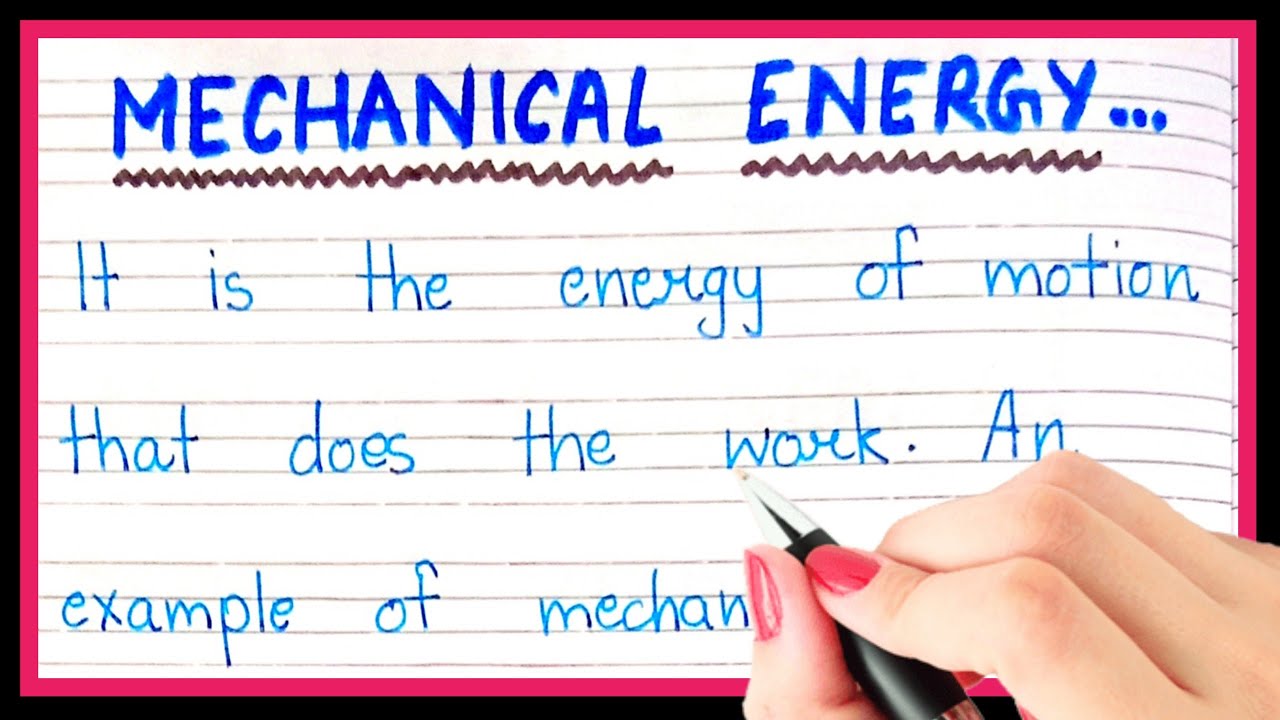 MECHANICAL ENERGY...
It is the energy of motion
that does the work. An
example of mechan